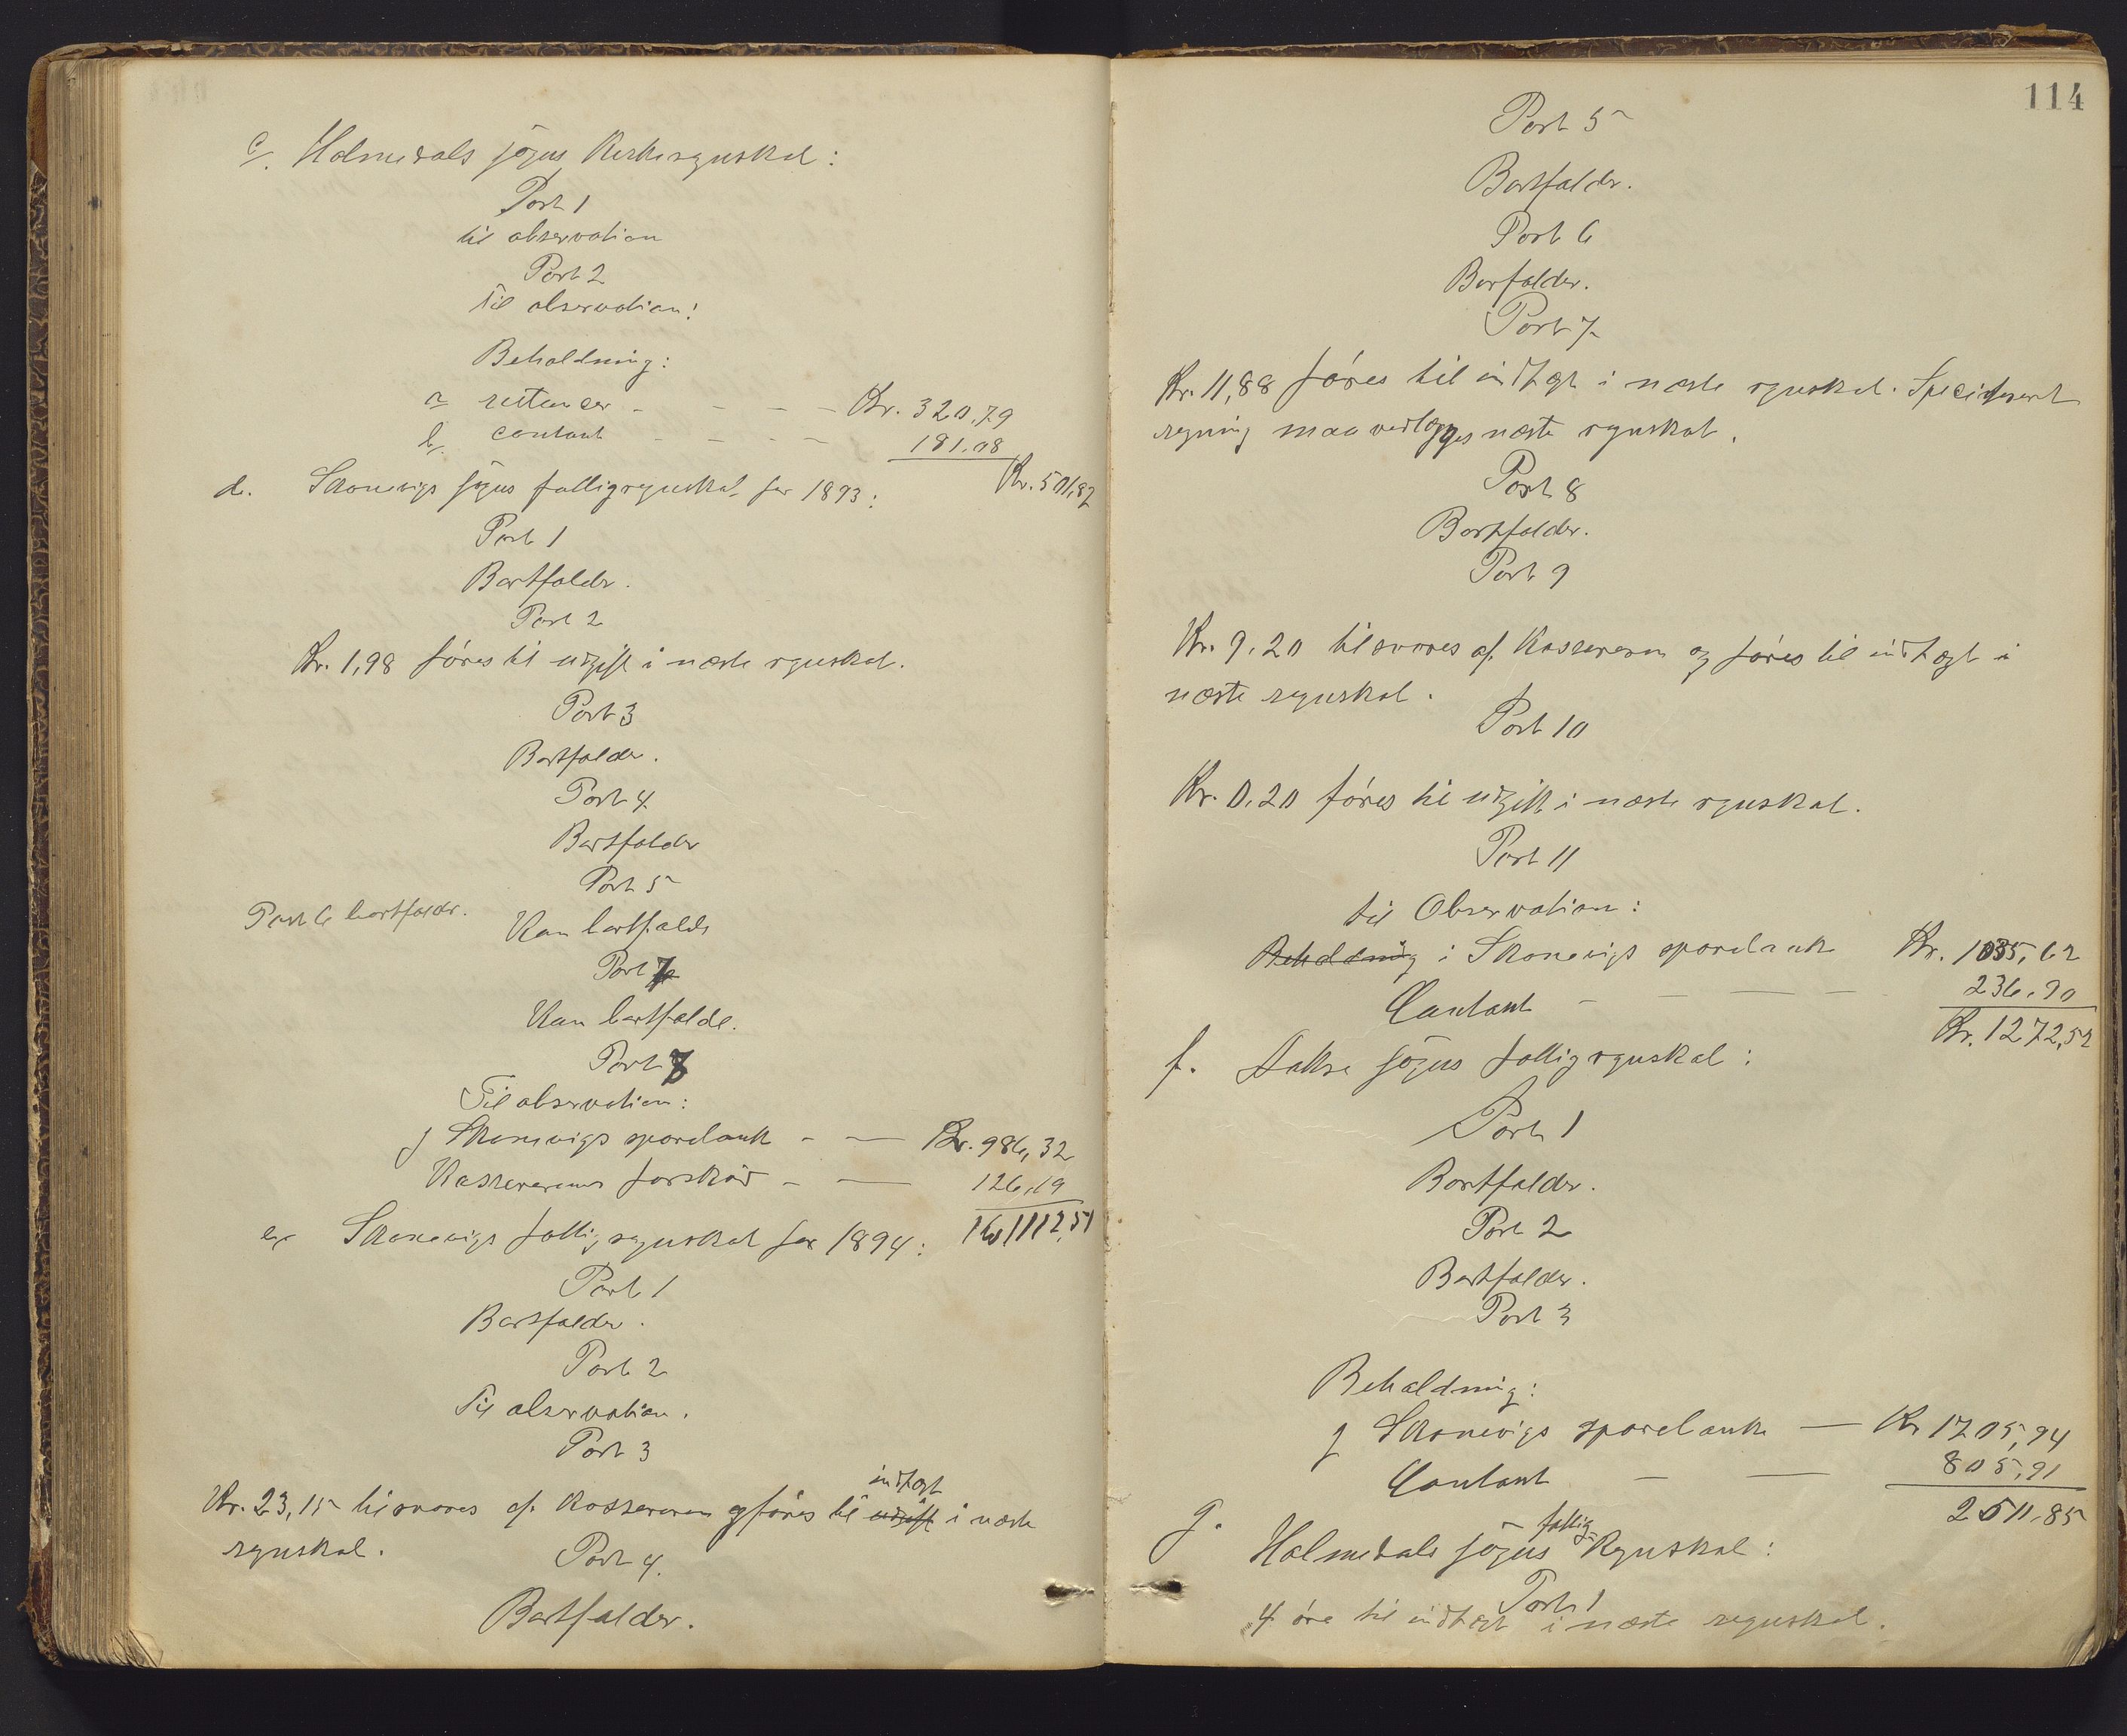 c/. Holmedals sogns Kirkeregnskab:
Post 1
til observation
Post 2
til observation!
Beholdning:
a restancer - - - - Kr. 320,79
b/. contant - - - - 181.08
Kr. 501,87
d. Skonevigs sogns fattigregnskab for 1893:
Post 1
Bortfalder.
Post 2
Kr. 1,98 føres til udgift i næste regnskab.
Post 3
Bortfalder.
Post 4
Bortfalder
Post 5
Kan bortfalde
Post 6 bortfalder.
Post 7
Kan bortfalde.
Post 8
Til observation:
J Skonevigs sparebank - — Kr. 986,32
Kassererens forskud - — 126,19
Kr 1112,51
e/. Skonevigs fattigregnskab for 1894:
Post 1
Bortfalder.
Post 2
Til observation.
Post 3
indtægt
Kr. 23,15 tilsvares af Kassereren og føres til udgift i næste
regnskab.
Post 4.
Bortfalder.
114
Post 5
Bortfalder.
Post 6
Borfalder.
Post 7
Kr. 11,88 føres til indtægt i næste regnskab. Specificeret
regning maa vedlægges næste regnskab.
Post 8
Bortfalder.
Post 9
Kr. 9,20 tilsvares af Kassereren og føres til indtægt i
næste regnskab.
Post 10
Kr. 0,20 føres til udgift i næste regnskab.
Post 11
til Observation:
Beholdning i Skonevigs sparebank Kr. 1035,62
Contant - — — — 236,90
Kr. 1272,52
f. Aakre sogns fattigregnskab:
Post 1
Bortfalder.
Post 2
Bortfalder.
Post 3
Beholdning:
J Skonevigs sparebank — Kr 1705,94
Contant — — 805,91
2511,85
g. Holmedals sogns fattig- Regnskab:
Post 1
4 øre til indtægt i næste regnskab.